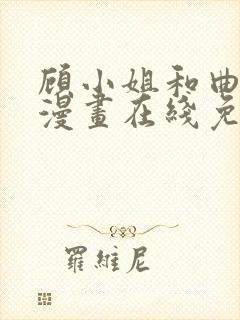 顾小姐和曲
漫畫在綫免
羅維尼